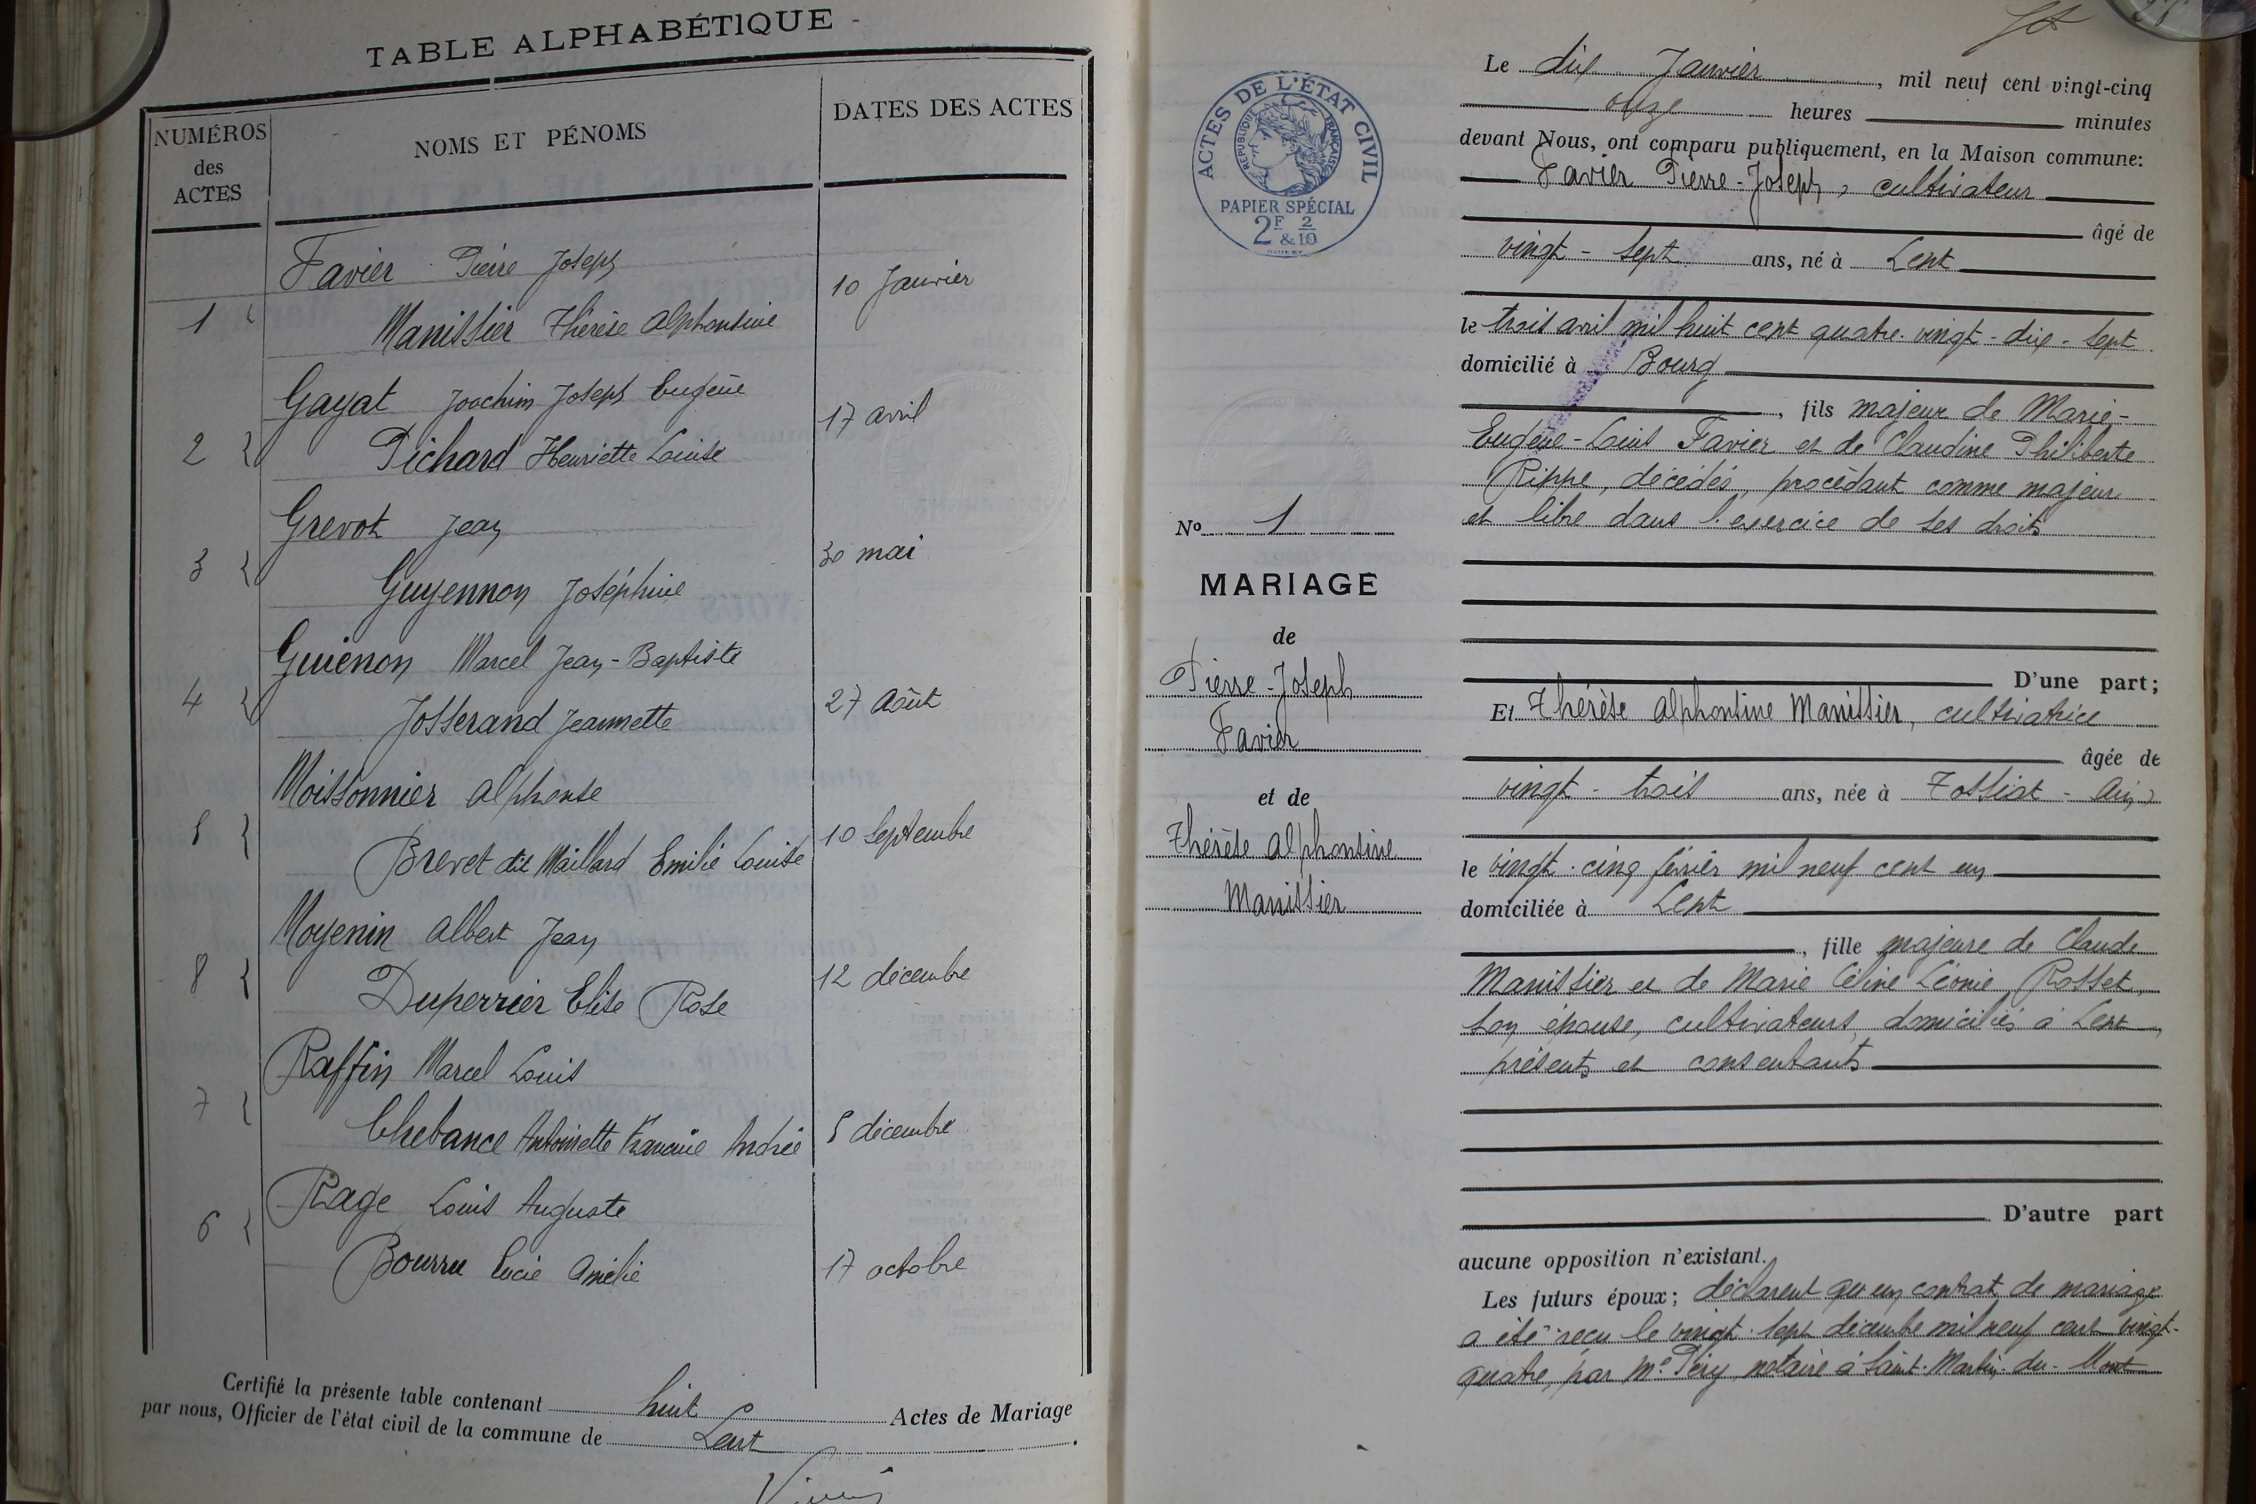 TABLE ALPHABÉTIQUE
NUMÉROS
des
ACTES
NOMS ET PÉNOMS
DATES DES ACTES
Favier Pierre Joseph
1 Manissier Thérèse Alphonsine 10 Janvier
Gayat Joachim Joseph Eugène
2 Pichard Henriette Louise 17 avril
Grevot Jean
3 Guyennon Joséphine 30 mai
Guienon Marcel Jean-Baptiste
4 Josserand Jeannette 27 Août
Moissonnier Alphonse
5 Brevet dit Maillard Emilie Louise 10 Septembre
Moyenin Albert Jean
8 Duperrier Elise Rose 12 décembre
Raffin Marcel Louis
7 Chebance Antoinette Françoise Andrée 5 décembre
Rage Louis Auguste
6 Bourru Lucie Amélie 17 octobre
Certifié la présente table contenant huit Actes de Mariage
par nous, Officier de l'état civil de la commune de Lent.
ACTES DE L'ÉTAT CIVIL
RÉPUBLIQUE FRANÇAISE
PAPIER SPÉCIAL
2F & 2/10
No 1
MARIAGE
de
Pierre-Joseph
Favier
et de
Thérèse Alphonsine
Manissier
Le dix Janvier, mil neuf cent vingt-cinq
onze heures minutes
devant Nous, ont comparu publiquement, en la Maison commune:
Favier Pierre-Joseph, cultivateur
âgé de
vingt-sept ans, né à Lent
le trois avril mil huit cent quatre-vingt-dix-sept
domicilié à Bourg
, fils majeur de Marie-
Eugène-Louis Favier et de Claudine Philiberte
Rippe, décédés, procédant comme majeur
et libre dans l'exercice de ses droits
D'une part;
Et Thérèse Alphonsine Manissier, cultivatrice
âgée de
vingt-trois ans, née à Tossiat-Ain
le vingt-cinq février mil neuf cent un
domiciliée à Lent
, fille majeure de Claude
Manissier et de Marie Céline Léonie Rosset,
son épouse, cultivateurs, domiciliés à Lent,
présents et consentants
D'autre part
aucune opposition n'existant.
Les futurs époux; déclarent qu'un contrat de mariage
a été reçu le vingt-sept décembre mil neuf cent vingt-
quatre, par Me Péry notaire à Saint-Martin-du-Mont